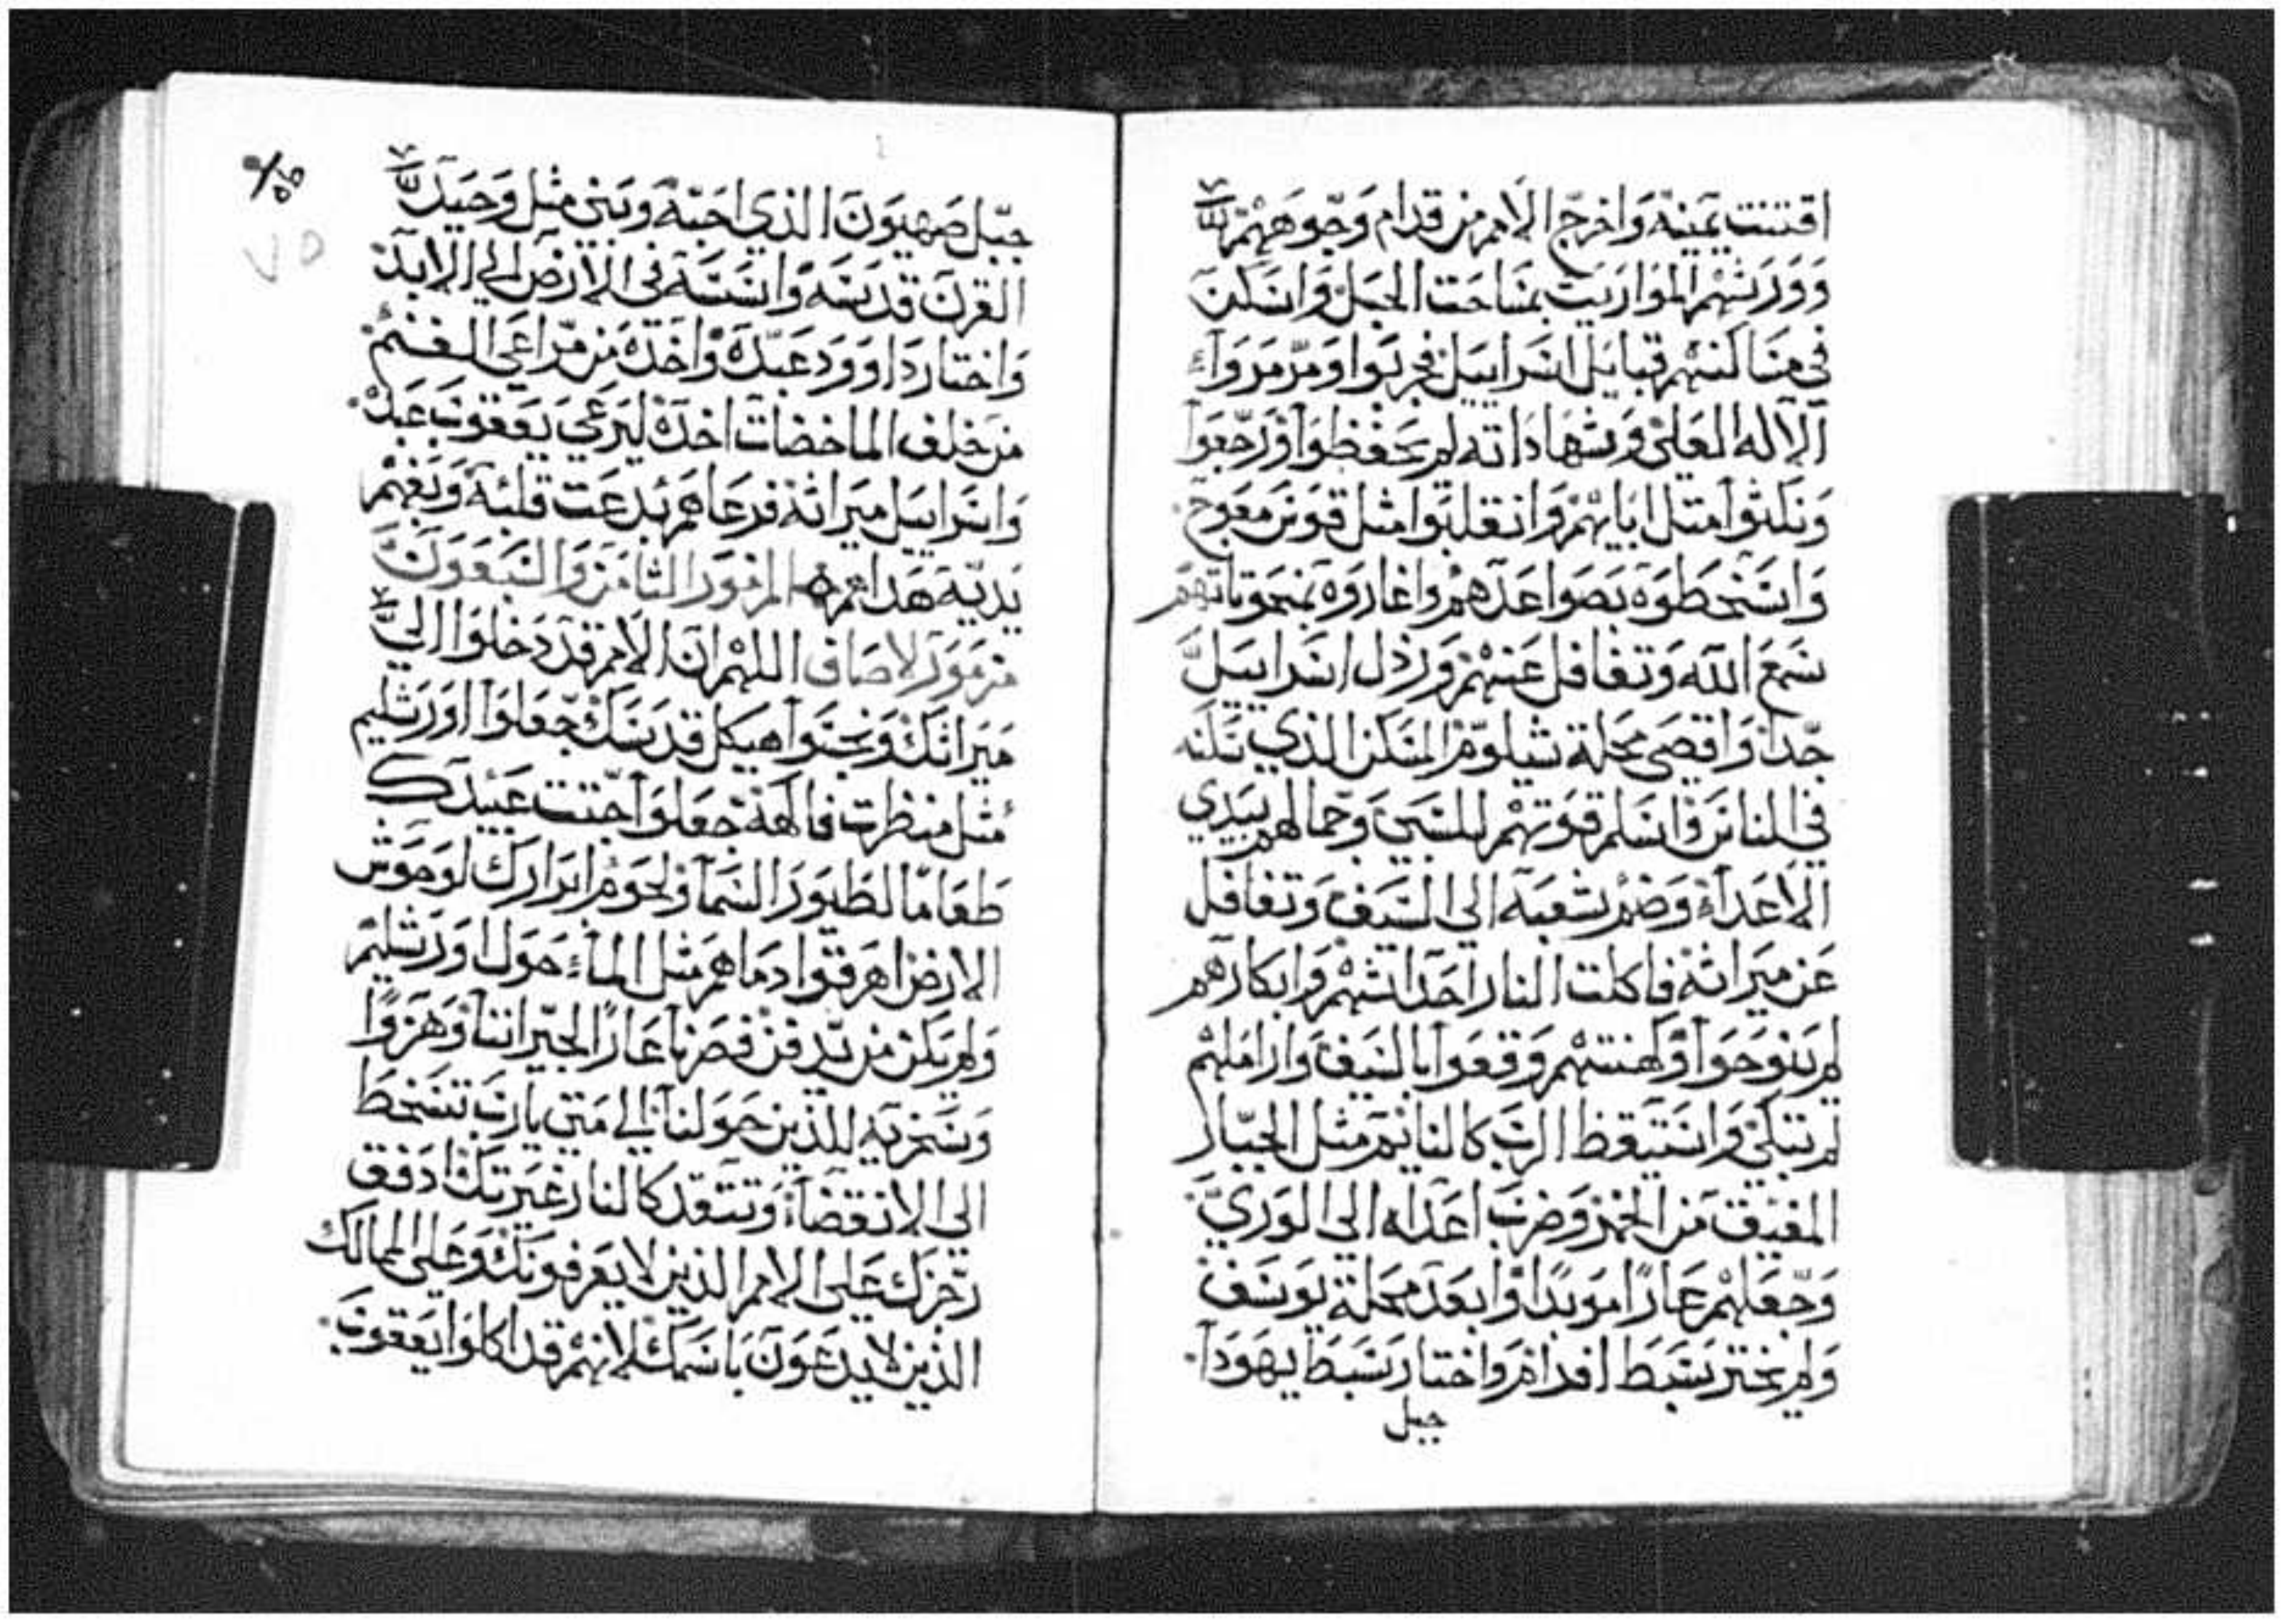 اقتنت يمينه واخرج الامم من قدام وجوههم
وورثهم المواريت بمساحت الحبل واسكن
في مساكنهم قبايل اسراييل فجربوا ومرمروا
الاله العلي وشهاداته لم يحفظوا ورجعوا
ونكثوا متل ابايهم وانقلبوا مثل قوس معوج
واسخطوه بصواعدهم واغاروه بمنحوتاتهم
سمع الله وتغافل عنهم ورذل اسراييل
جدا واقصى محلة شيلوم المسكن الذي سكنه
في الناس واسلم قوتهم للسبي وجمالهم بيدي
الاعداء وضم شعبه الى السيف وتغافل
عن ميراثه فاكلت النار احداثهم وابكارهم
لم ينوحوا وكهنتهم وقعوا بالسيف واراملهم
لم تبكي واستيقظ الرب كالنايم مثل الجبار
المفيق من الخمر وضرب اعداه الى الوري
وجعلهم عارا موبدا وابعد محلة يوسف
ولم يختر سبط افرام واختار سبط يهودا
جبل
٩/٥٥
٧٥
جبل صهيون الذي احبه وبنى مثل وحيد
القرن قدسه واسسه في الارض الي الابد
واختار داوود عبده واخذه من مراعي الغنم
من خلف الماخضات اخذه ليرعي يعقوب عبده
واسراييل ميراثه فرعاهم بدعت قلبه وبفهم
يديه هداهم المزمور الثامن والسبعون
مزمور لاصاف اللهم ان الامم قد دخلوا الي
ميراثك ونجسوا هيكل قدسك جعلوا اورشليم
مثل منظرت فاكهة جعلوا جتت عبيدك
طعاما لطيور السما ولحوم ابرارك لوحوش
الارض اهرقوا دماهم مثل الماء حول اورشليم
ولم يكن من يدفن فصرنا عارا لجيراننا وهزوا
وسخريه للذين حولنا الي متى يارب تسخط
الى الانقضاء وتتقد كالنار غيرتك ادفق
رجزك على الامم الذين لا يعرفونك وعلى الممالك
الذين لا يدعون باسمك لانهم قد اكلوا يعقوب